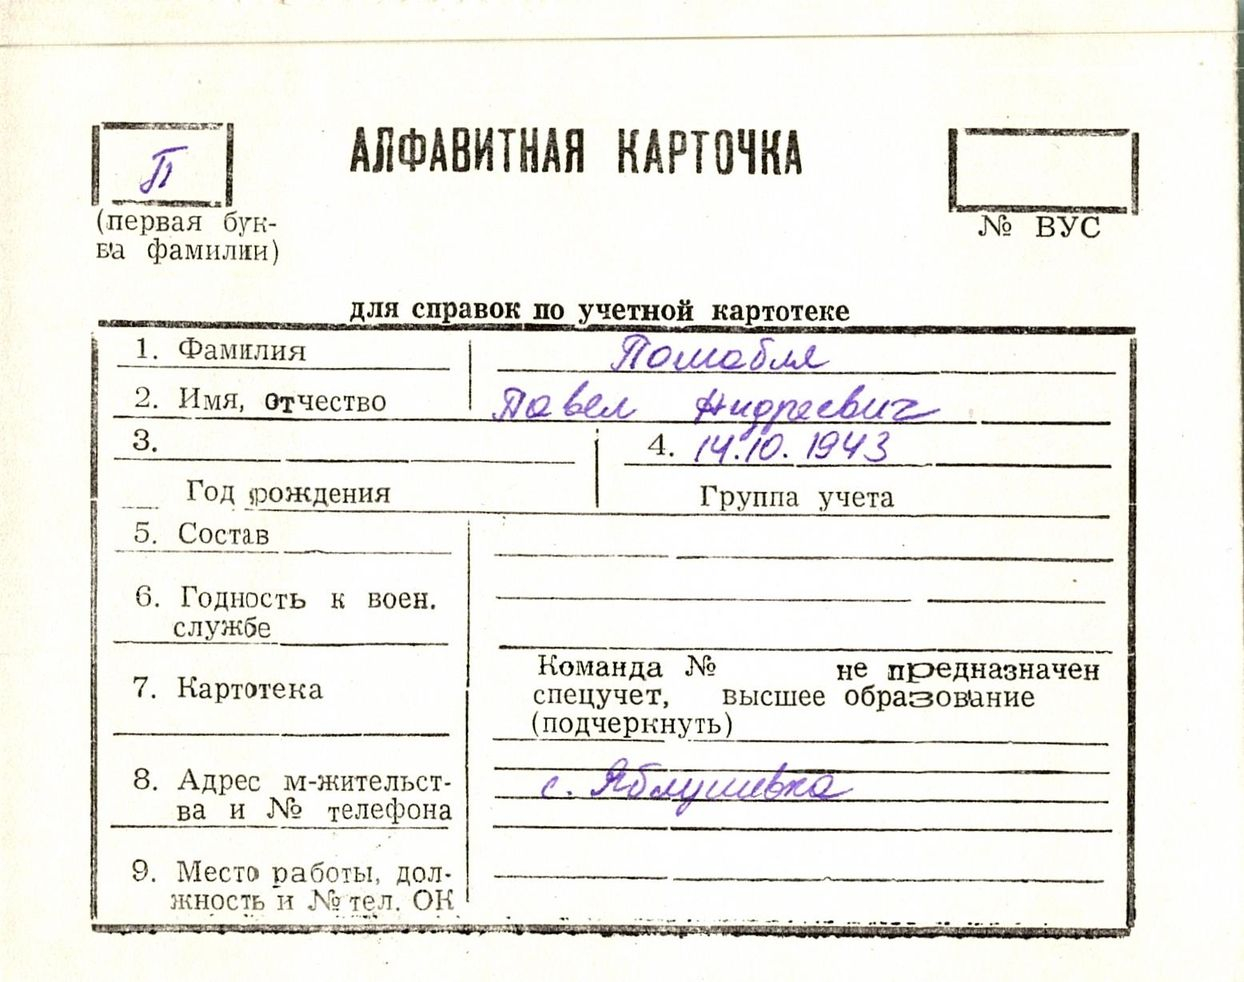 АЛФАВИТНАЯ КАРТОЧКА
П
(первая бук-
ва фамилии)
№ ВУС
для справок по учетной картотеке
1. Фамилия
2. Имя, отчество Павел Андреевич
3. 4. 14.10.1943
Год рождения Группа учета
5. Состав
6. Годность к воен.
службе
7. Картотека
Команда № не предназначен
спецучет, высшее образование
(подчеркнуть)
8. Адрес м-жительст-
ва и № телефона
с. Яблушевка
9. Место работы, дол-
жность и № тел. ОК